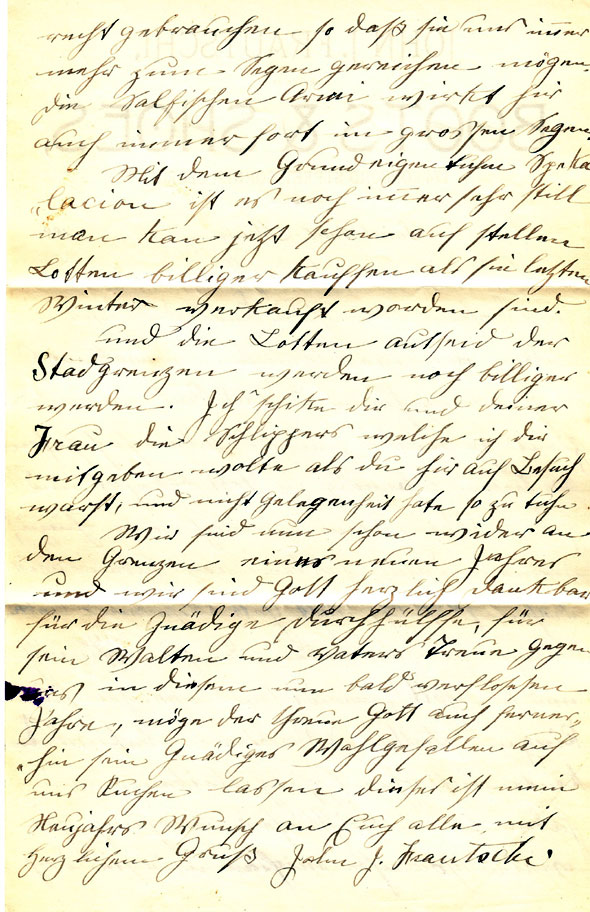 recht gebrauchen so daß sie uns immer
mehr zum Segen gereichen mögen.
die Salfischen Armi wirkt hir
auch immer fort im grossen Segen.
Mit dem Grundeigentuhm Speku
lacion ist es noch immer sehr still
man kan jezt schon auf stellen
Lotten billiger kauffen als sie lezten
Winter verkauft worden sind.
und die Lotten autseid der
Stadgrenzen werden noch billiger
werden. Ich schikke dir und deiner
Frau die Schlippers welche ich dir
mitgeben wolte als du hir auf Besuch
warst, und nicht Gelegenheit hate so zu tuhn.
Wir sind nun schon wider an
den Grenzen eines neuen Jahres
und wir sind Gott herzlich dankbar
für die Gnädige Durchhülffe, für
sein Walten und Vaters Treue gegen
uns in diesem nun bald verflosenen
Jahre, möge der threue Gott auch ferner
hin sein Gnädiges Wohlgefallen auf
uns Ruhen lassen dieses ist mein
Neujahrs Wunsch an Euch alle mit
Herzlichem Gruß John J. Frautschi.